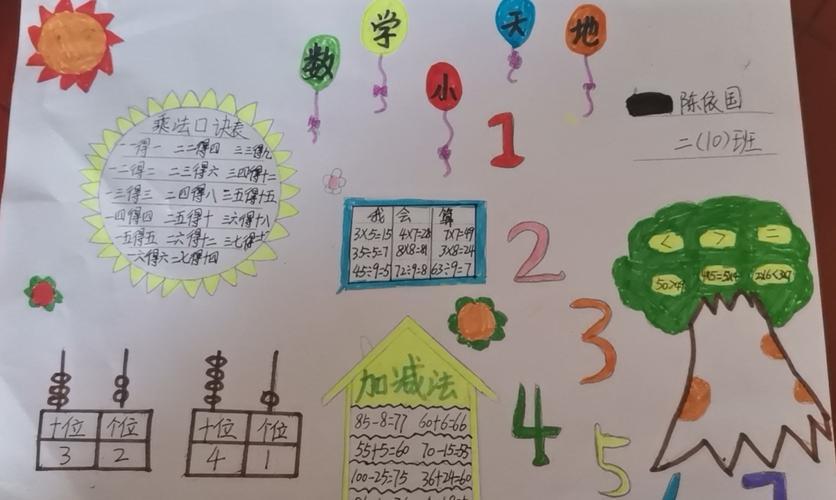 数学小天地
陈依国
二(10)班
乘法口诀表
一一得一 二二得四 三三得九
一二得二 二三得六 三四得十二
一三得三 二四得八 三五得十五
一四得四 二五得十 三六得十八
一五得五 二六得十二
一六得六 二七得十四
我 会 算
3×5=15 4×7=28 7×7=49
35÷5=7 3×8=24
45÷9=5 72÷9=8 63÷9=7
1
2
3
4
5
7
< > =
4×5=5×4 2×6<3×7
十位 个位
3 2
十位 个位
4 1
加减法
85-8=77 60+6=66
55+5=60 70-15=55
100-25=75 36+24=60